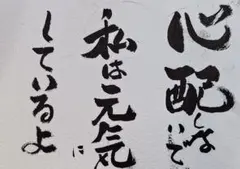 心配しないで
私は元気に
しているよ